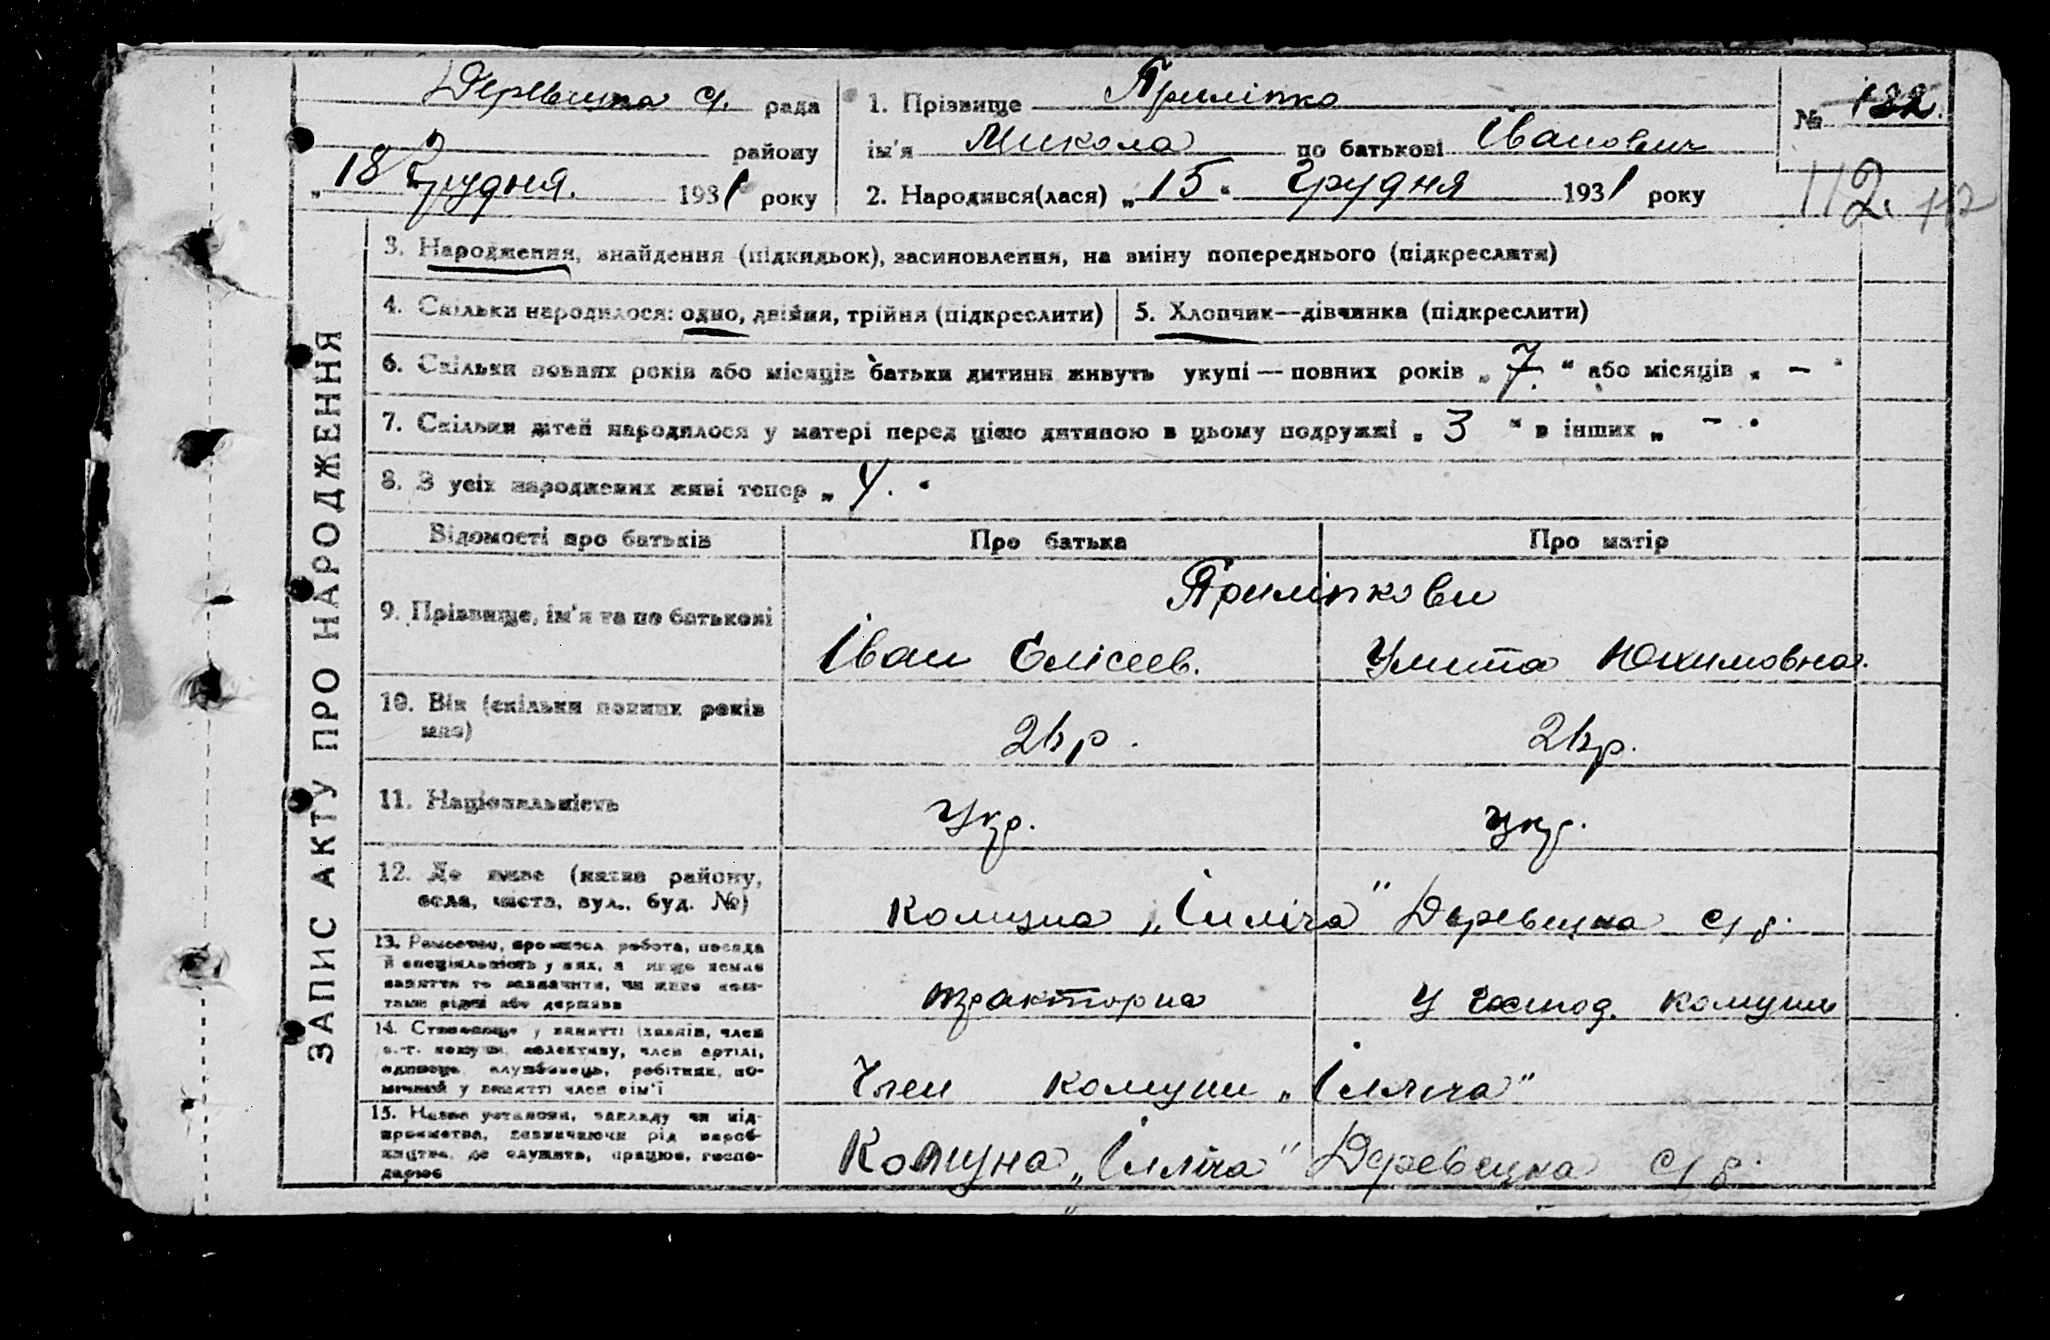 Деревецка с/. рада
району
„ 18 Грудня. 1931 року
1. Прізвище Приліпко
ім'я Микола по батькові Іванович
2. Народився(лася) „ 15 “ Грудня 1931 року
№ 122.
112. 112
ЗАПИС АКТУ ПРО НАРОДЖЕННЯ
3. Народження, знайдення (підкидьок), засиновлення, на зміну попереднього (підкреслити)
4. Скільки народилося: одно, двійня, трійня (підкреслити)
5. Хлопчик—дівчинка (підкреслити)
6. Скільки повних років або місяців батьки дитини живуть укупі — повних років „ 7. “ або місяців „ – “
7. Скільки дітей народилося у матері перед цією дитиною в цьому подружжі „ 3 “ в інших „ – “
8. З усіх народжених живі тепер „ 4. “
Відомості про батьків
Про батька
Про матір
9. Прізвище, ім'я та по батькові
Приліпкови
Іван Елісеев.
Улита Юхимовна.
10. Вік (скільки повних років має)
26 р.
26 р.
11. Національність
Укр.
укр.
12. Де живе (назва району,
села, міста, вул., буд. №)
Комуна „Ілліча" Деревецка с/
13. Ремество, промисел, робота, посада
й спеціяльність у них, а якщо немає
заняття то зазначити, чи живе кош-
тами рідні або держави
тракторна
У господ. комуни
14. Становище у занятті (хазяїн, член
с.-г. комуни, колективу, член артілі,
одинець, службовець, робітник, по-
мічний у занятті член сім'ї
Член комуни „Ілліча"
15. Назва установи, закладу чи під-
приємства, зазначаючи рід вироб-
ництва, де служить, працює, госпо-
дарює
Комуна „Ілліча" Деревецка с/